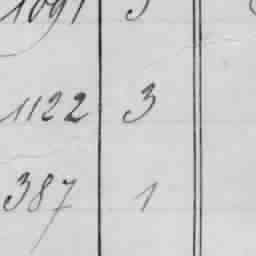 1091
1122 3
387 1